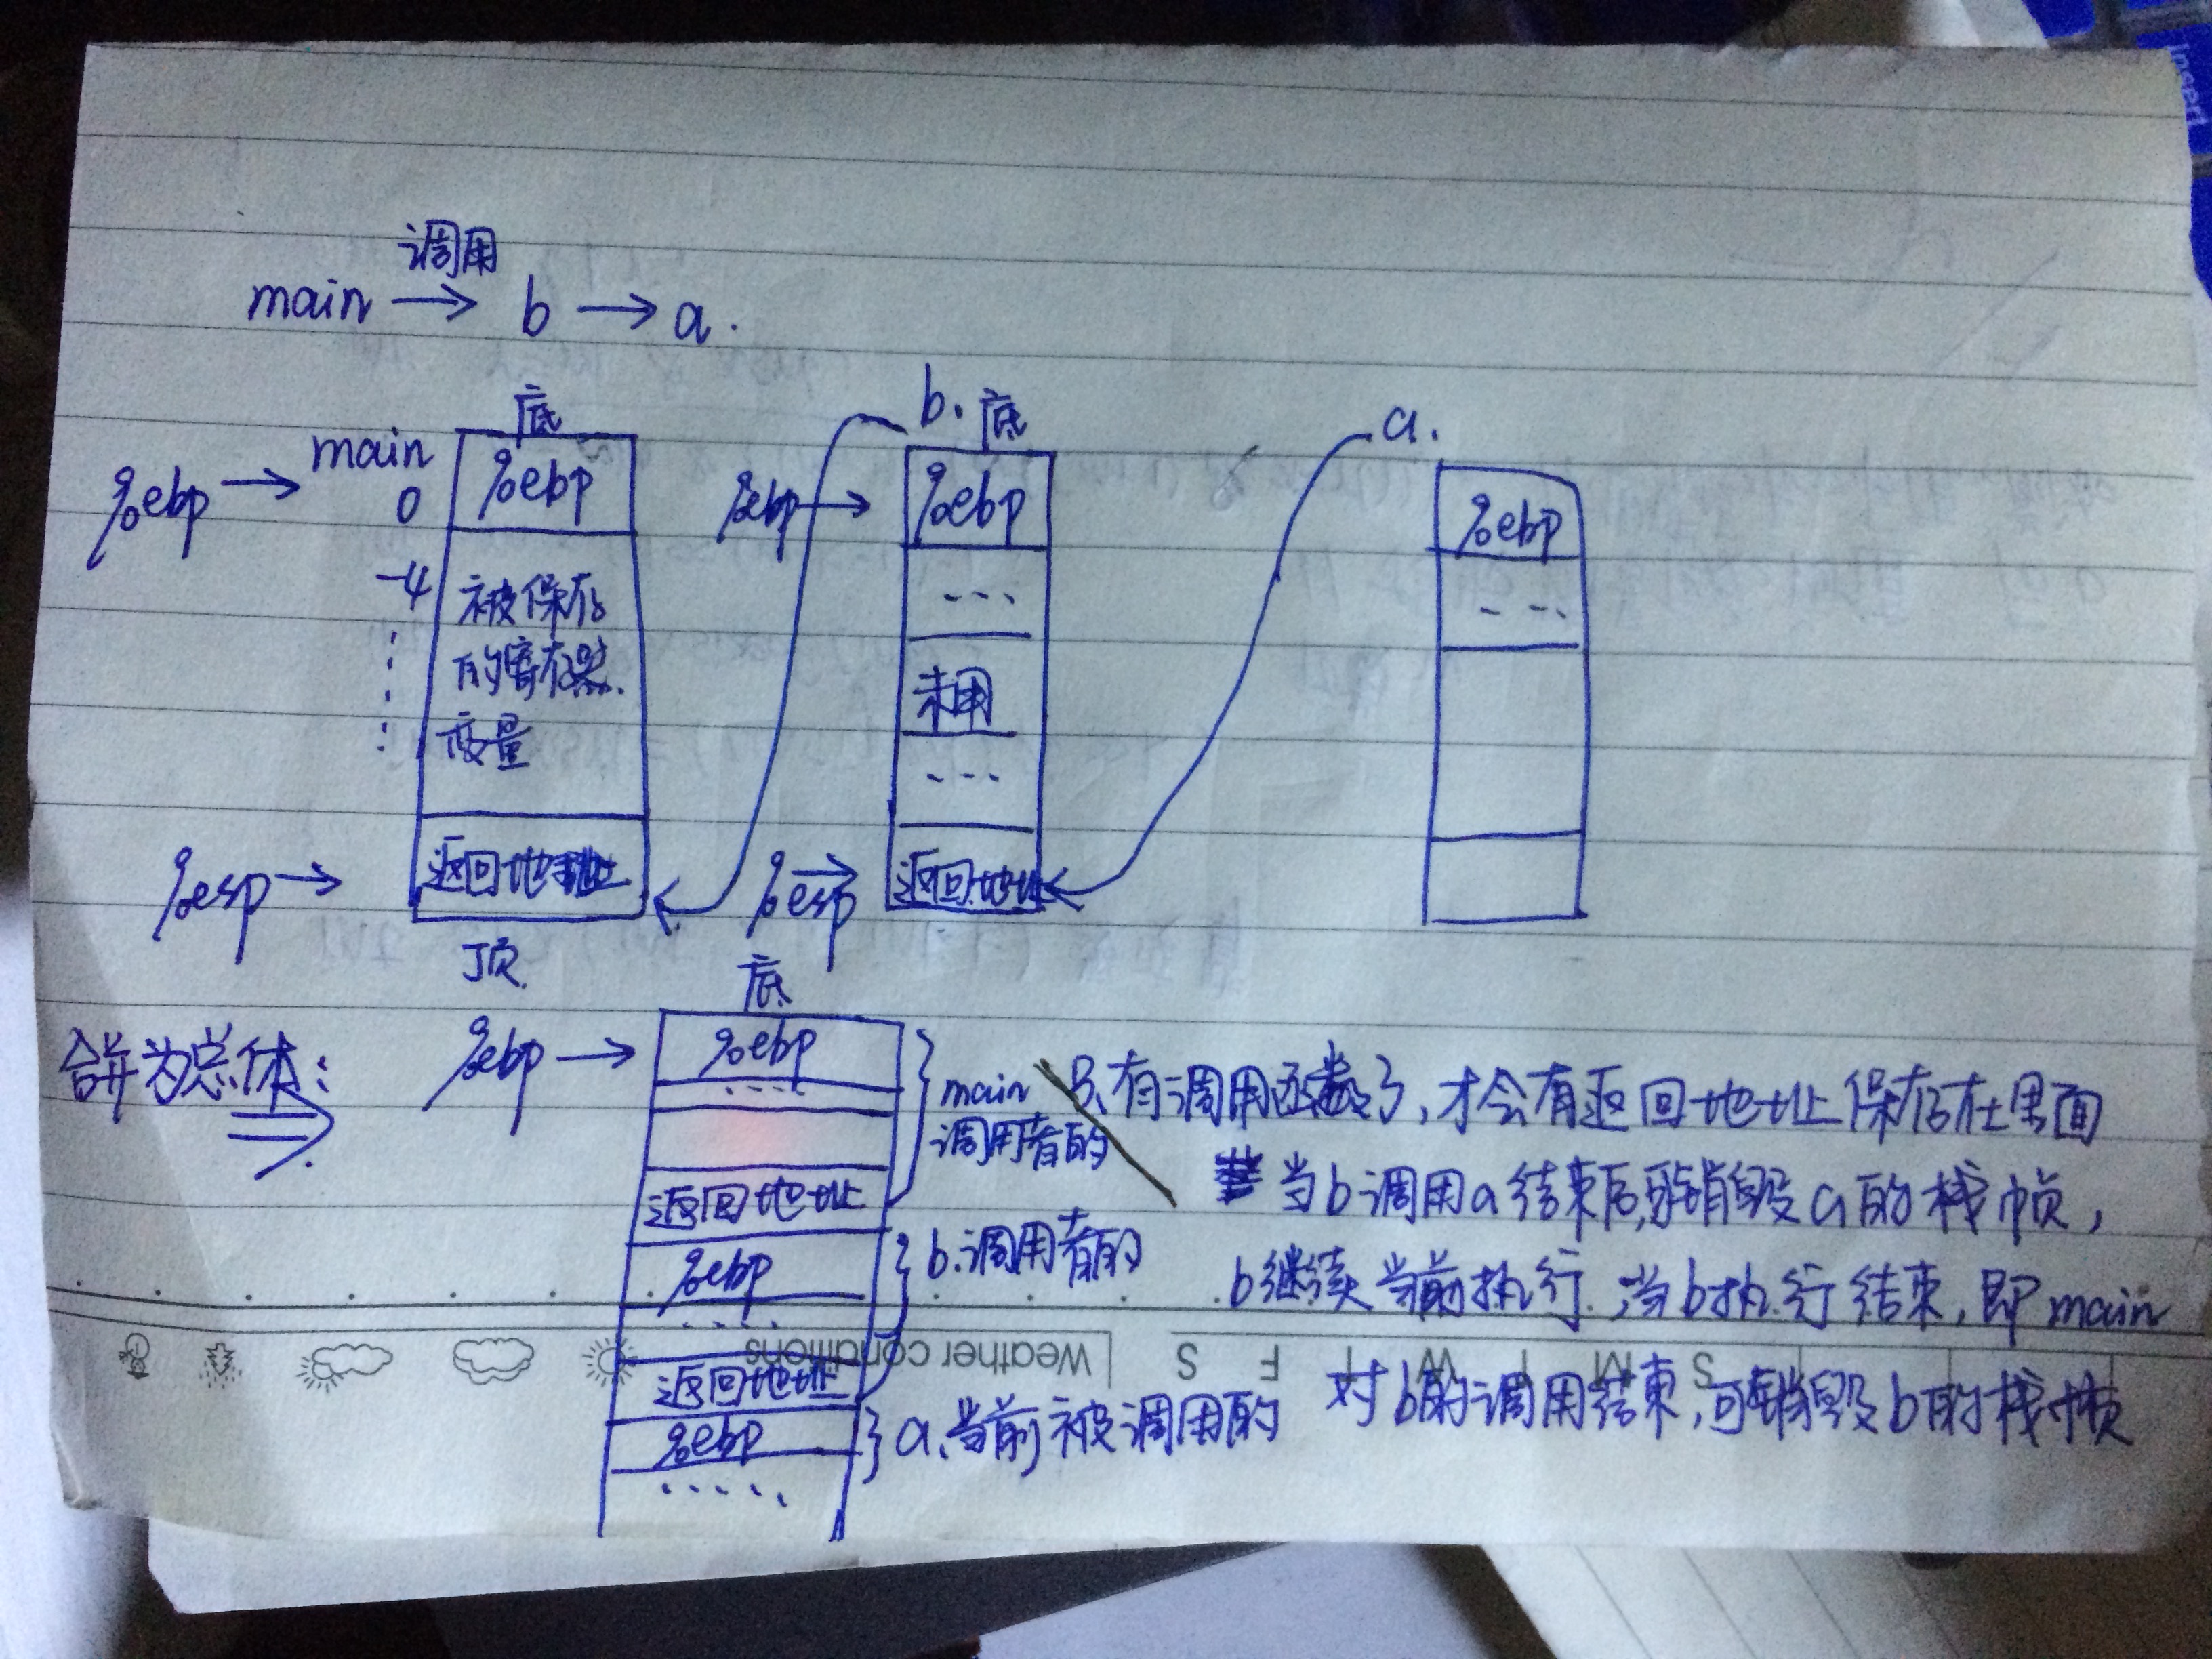 调用
main → b → a.
底
b. 底
a.
main
%ebp →
0
%ebp
%ebp →
%ebp
%ebp
-4
被保存
的寄存器.
变量
---
未用
---
- --
%esp →
返回地址
%esp →
返回地址
顶
底
合并为总体:
%ebp →
%ebp
.....
返回地址
main
调用者的
%ebp
.....
返回地址
b.调用者的
%ebp
.....
a.当前被调用的
只有调用函数了,才会有返回地址保存在里面
当b调用a结束后,可销毁a的栈帧,
b继续当前执行.当b执行结束,即main
对b的调用结束,可销毁b的栈帧
Weather conditions
S M T W T F S
Insert